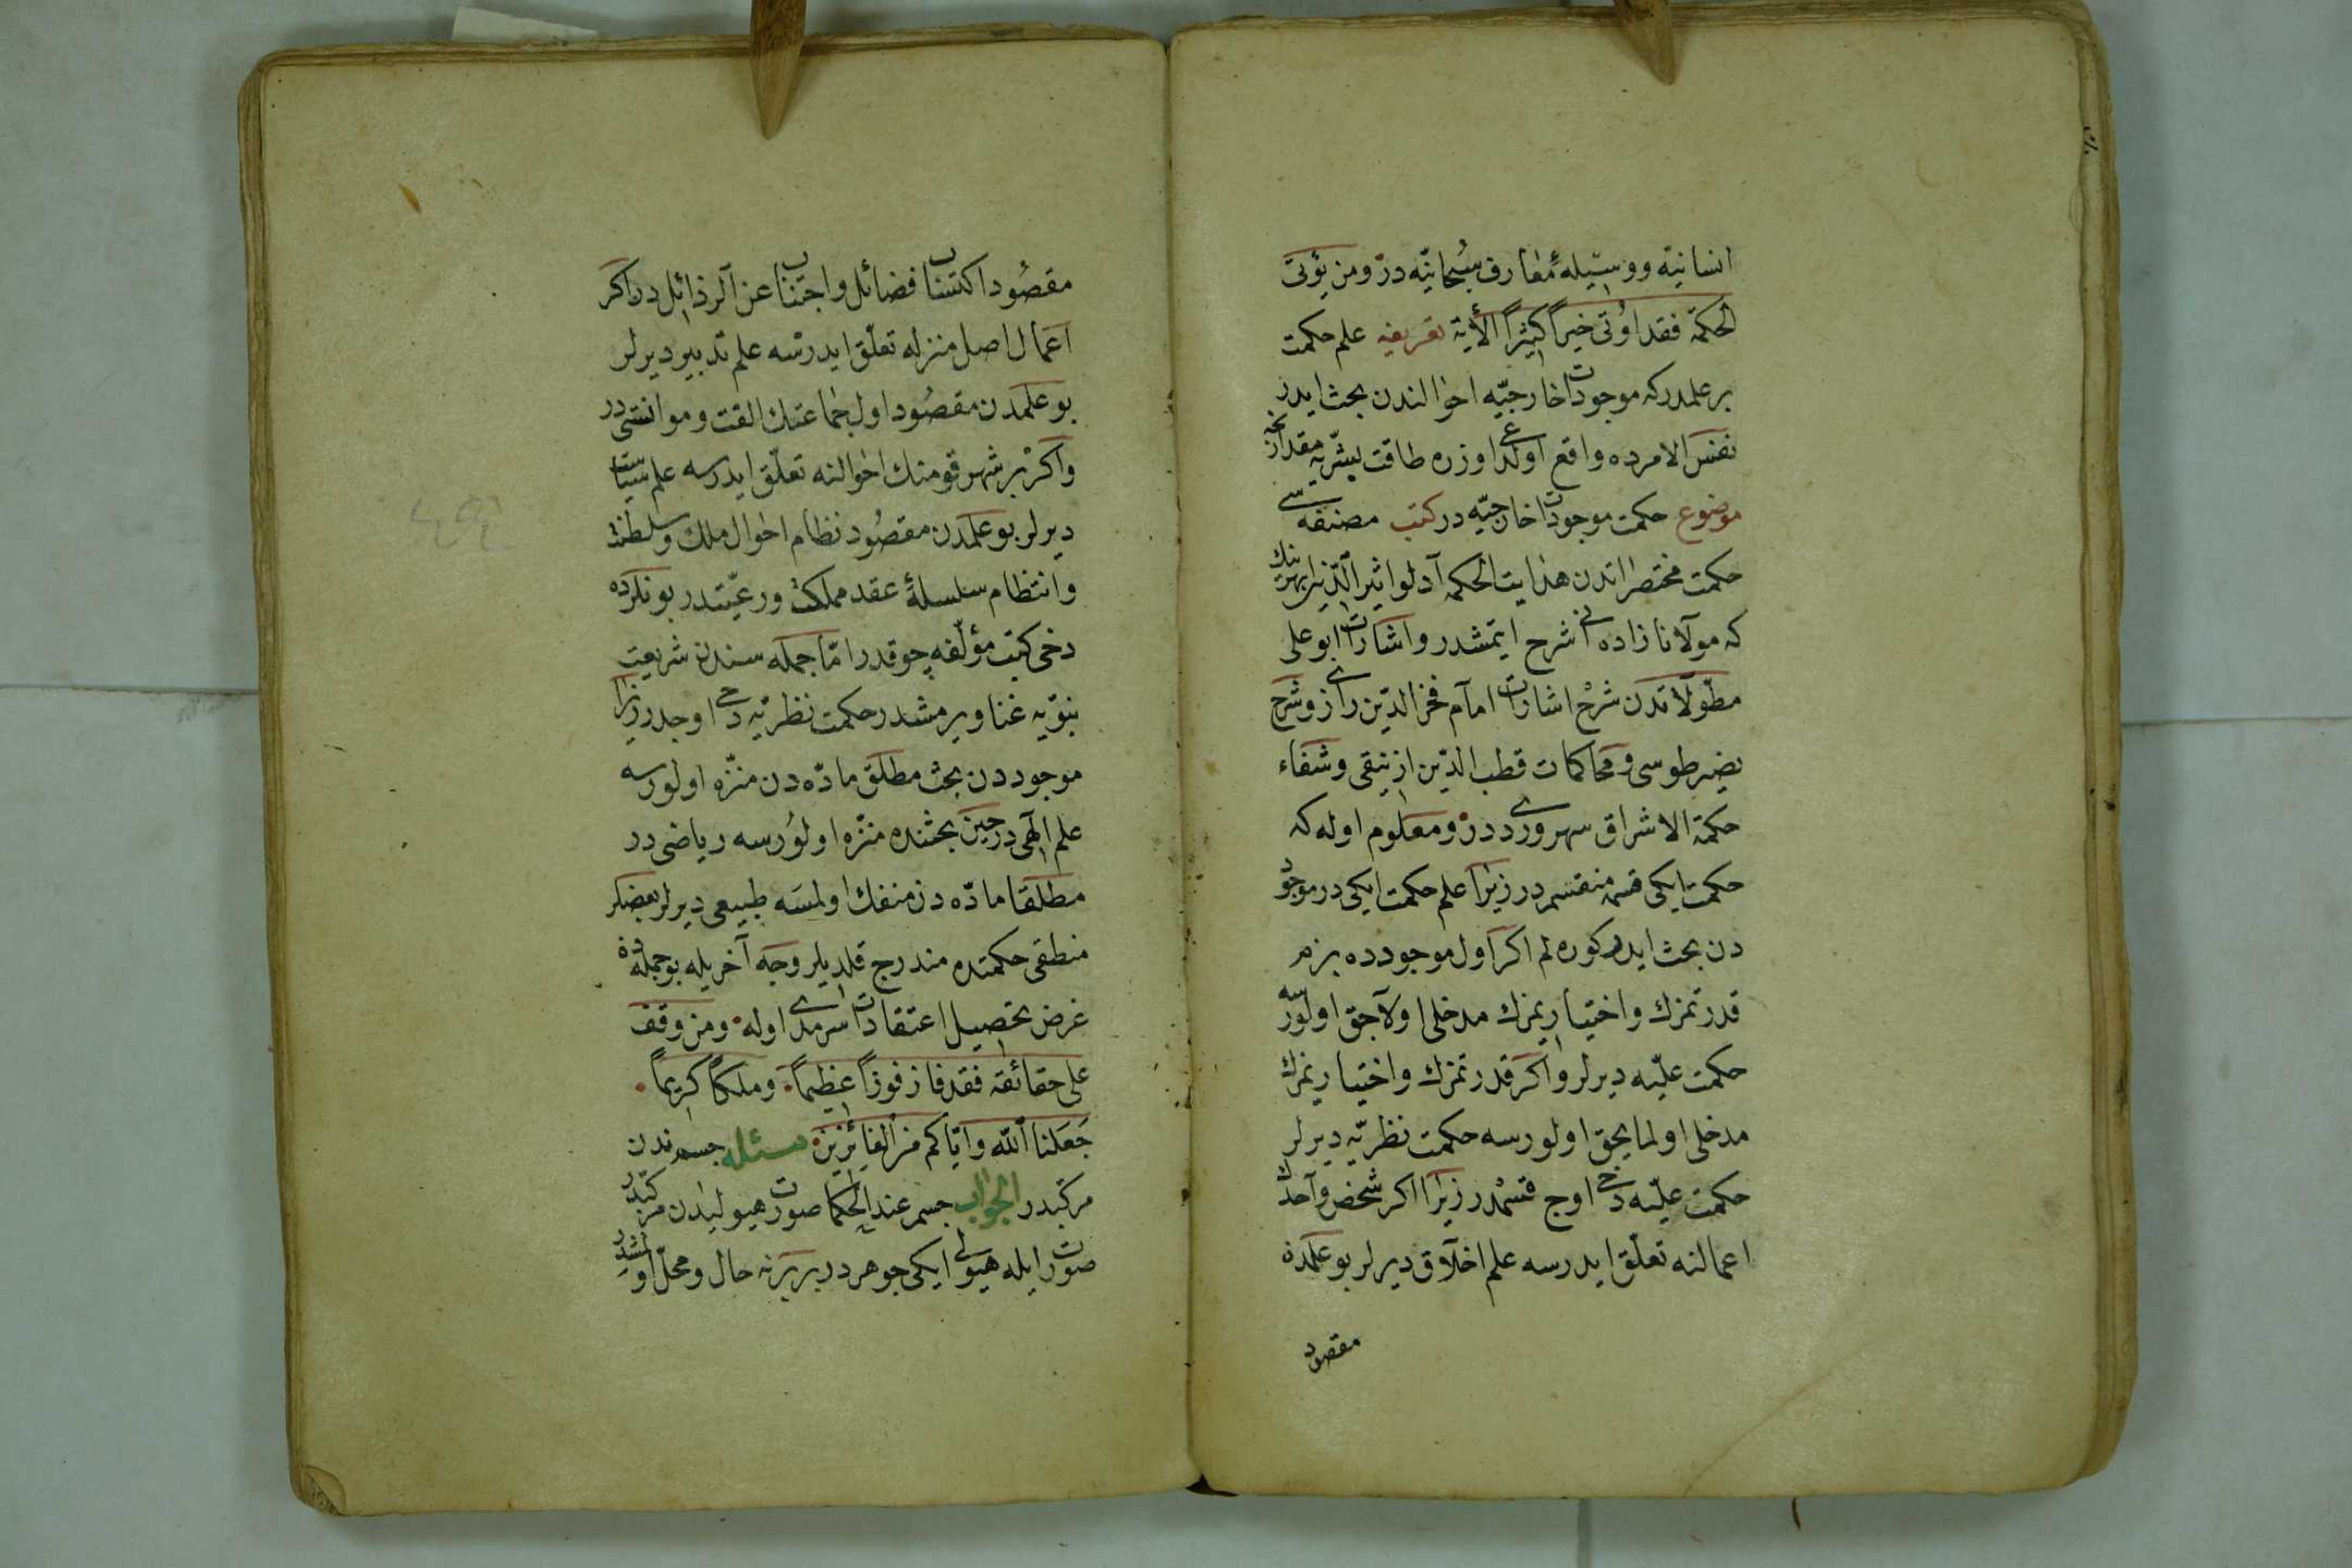 انسانیّه و وسیلهٔ مفارف سُبحانیّه در ومن یؤتی
الحکمة فقد اوتی خیراً کثیراً الأیة تعریفیه علم حکمت
بر علمدرکه موجودات خارجیّه احوالندن بحث ایدر
نفس الامرده واقع اولدوغی اوزره طاقت بشریّه مقدارنجه
موضوع حکمت موجودات خارجیّه در کتب مصنفه سی
حکمت مختصراتدن هدایت الحکمه آدلو اثیر الدّین ابهرینك
که مولانا زاده انی شرح ایتمشدر و اشارات ابو علی
مطوّلاتدن شرح اشارات امام فخر الدّین رازی و شرح
نصیر طوسی و محاکمات قطب الدّین ازنیقی و شفاء
حکمة الاشراق سهروردی در و معلوم اوله که
حکمت ایکی قسمه منقسم در زیرا علم حکمت ایکی در موجود
دن بحث ایدر کوره لم اکر اول موجودده بزم
قدرتمزك و اختیاریمزك مدخلی اولاجق اولورسه
حکمت علیّه دیرلر و اکر قدرتمزك و اختیاریمزك
مدخلی اولمایجق اولورسه حکمت نظریّه دیرلر
حکمت علیّه دخی اوج قسمدر زیرا اکر شخص واحدك
اعمالنه تعلّق ایدرسه علم اخلاق دیرلر بو علمده
مقصود
مقصُود اکتساب فضائل و اجتناب عن الرذائل در اکر
اعمال اصل منزله تعلّق ایدرسه علم تدبیر دیرلر
بو علمدن مقصُود اول جماعتك الفت و موانستی در
و اکر بر شهر قومنك احوالنه تعلّق ایدرسه علم سیاست
دیرلر بو علمدن مقصُود نظام احوال ملك و سلطنت
و انتظام سلسلهٔ عقد مملکت و رعیّتدر بونلرده
دخی کتب مؤلّفه چوقدر امّا جمله سندن شریعت
نبویّه غنا ویرمشدر حکمت نظریّه دخی اوجدر زیرا
موجوددن بحث مطلق مادّه دن منزّه اولورسه
علم الهی در حین بحثنده منزّه اولورسه ریاضی در
مطلقا مادّه دن منفك اولمسه طبیعی دیرلر بعضیلر
منطقی حکمتده مندرج قلدیلر وجه آخریله بو جمله ده
غرض تحصیل اعتقادات سرمدی اوله ومن وقف
علی حقائقه فقد فاز فوزاً عظیماً وملکاً کریماً
جَعَلنا الله وایّاکم من الفائزین مسئله جسم ندن
مرکبدر الجواب جسم عند الحکما صورت هیولیدن مرکبدر
صورت ایله هیولی ایکی جوهردر بربرنه حال و محلّ اولمشدر